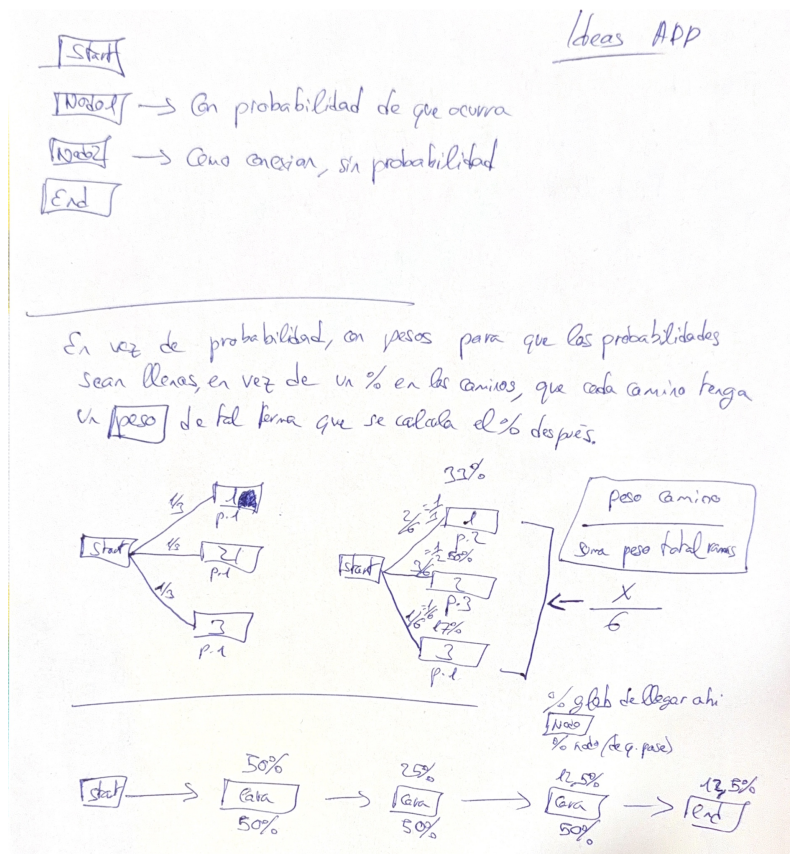 Ideas APP
Start
Nodo1 → Con probabilidad de que ocurra
Nodo2 → Como conexion, sin probabilidad
End
En vez de probabilidad, con pesos para que las probabilidades
sean llenas, en vez de un % en los caminos, que cada camino tenga
un peso de tal forma que se calcula el % después.
Start
1/3
1
p.1
1/3
2
p.1
1/3
3
p.1
33%
Start
2/6 = 1/3
1
p.2
3/6 = 1/2 50%
2
p.3
1/6 = 1/6 17%
3
p.1
peso camino
suma peso total ramas
← x/6
% glob de llegar ahi
Nodo
% nodo (de q. pase)
50% 25% 12,5% 12,5%
Start → Cara → Cara → Cara → End
50% 50% 50%